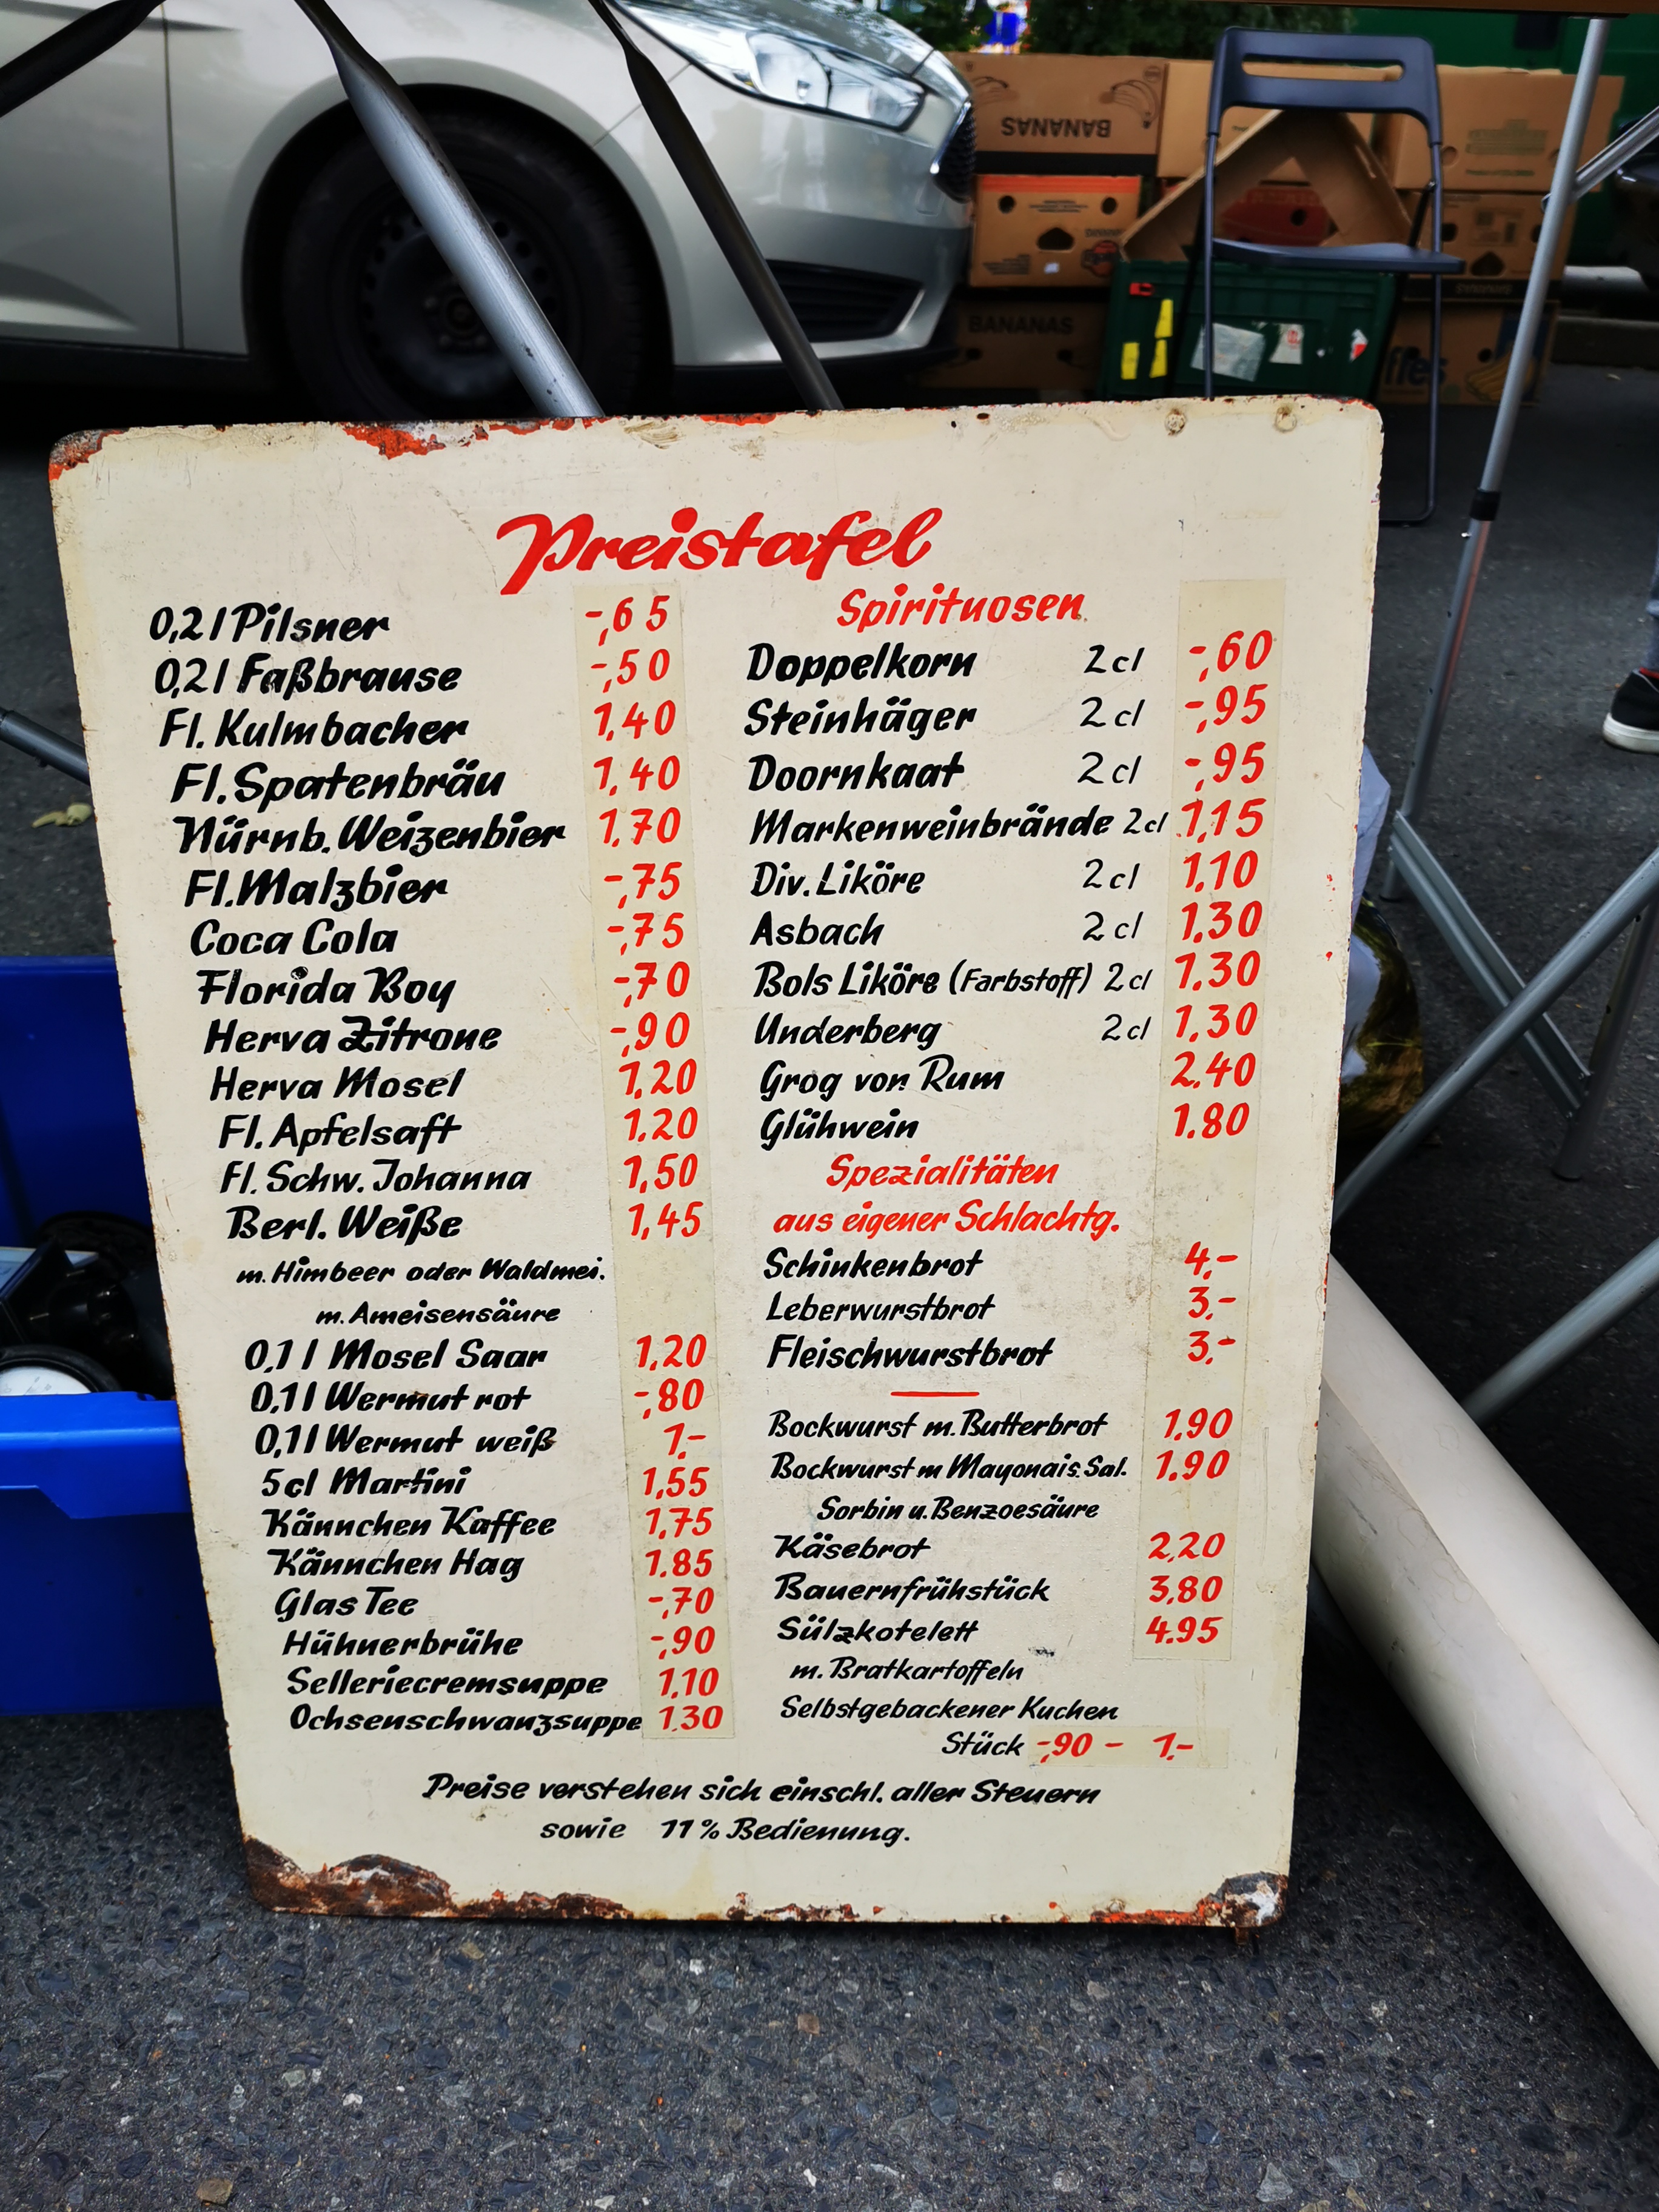 BANANAS
BANANAS
Preistafel
0,2 l Pilsner -,65
0,2 l Faßbrause -,50
Fl. Kulmbacher 1,40
Fl. Spatenbräu 1,40
Nürnb. Weizenbier 1,70
Fl. Malzbier -,75
Coca Cola -,75
Florida Boy -,70
Herva Zitrone -,90
Herva Mosel 1,20
Fl. Apfelsaft 1.20
Fl. Schw. Johanna 1,50
Berl. Weiße 1,45
m. Himbeer oder Waldmei.
m. Ameisensäure
0,1 l Mosel Saar 1,20
0,1 l Wermut rot -,80
0,1 l Wermut weiß 1,-
5 cl Martini 1,55
Kännchen Kaffee 1,75
Kännchen Hag 1.85
Glas Tee -,70
Hühnerbrühe -,90
Selleriecremsuppe 1,10
Ochsenschwanzsuppe 1.30
Spirituosen
Doppelkorn 2 cl -,60
Steinhäger 2 cl -,95
Doornkaat 2 cl -,95
Markenweinbrände 2 cl 1,15
Div. Liköre 2 cl 1,10
Asbach 2 cl 1.30
Bols Liköre (Farbstoff) 2 cl 1.30
Underberg 2 cl 1,30
Grog von Rum 2.40
Glühwein 1.80
Spezialitäten
aus eigener Schlachtg.
Schinkenbrot 4,-
Leberwurstbrot 3,-
Fleischwurstbrot 3,-
Bockwurst m. Butterbrot 1,90
Bockwurst m Mayonais. Sal. 1.90
Sorbin u. Benzoesäure
Käsebrot 2,20
Bauernfrühstück 3,80
Sülzkotelett 4.95
m. Bratkartoffeln
Selbstgebackener Kuchen
Stück -,90 - 1,-
Preise verstehen sich einschl. aller Steuern
sowie 11 % Bedienung.